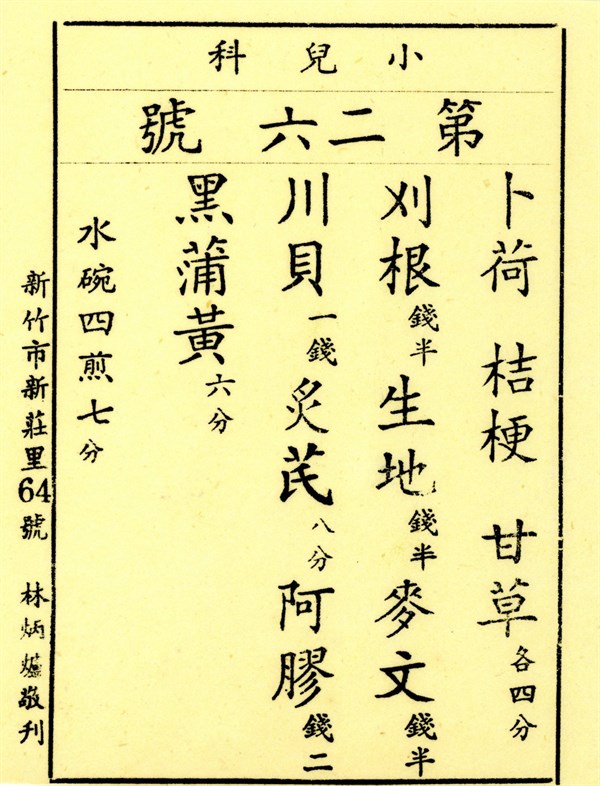 小兒科
第二六號
卜荷 桔梗 甘草各四分
刈根錢半 生地錢半 麥文錢半
川貝一錢 炙芪八分 阿膠錢二
黑蒲黃六分
水碗四煎七分
新竹市新莊里64號 林炳爐敬刊